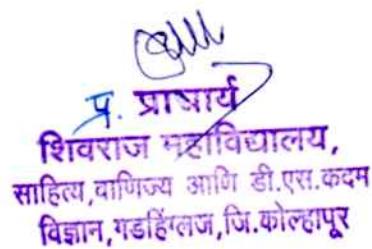 प्र. प्राचार्य
शिवराज महाविद्यालय,
साहित्य,वाणिज्य आणि डी.एस.कदम
विज्ञान,गडहिंग्लज,जि.कोल्हापूर